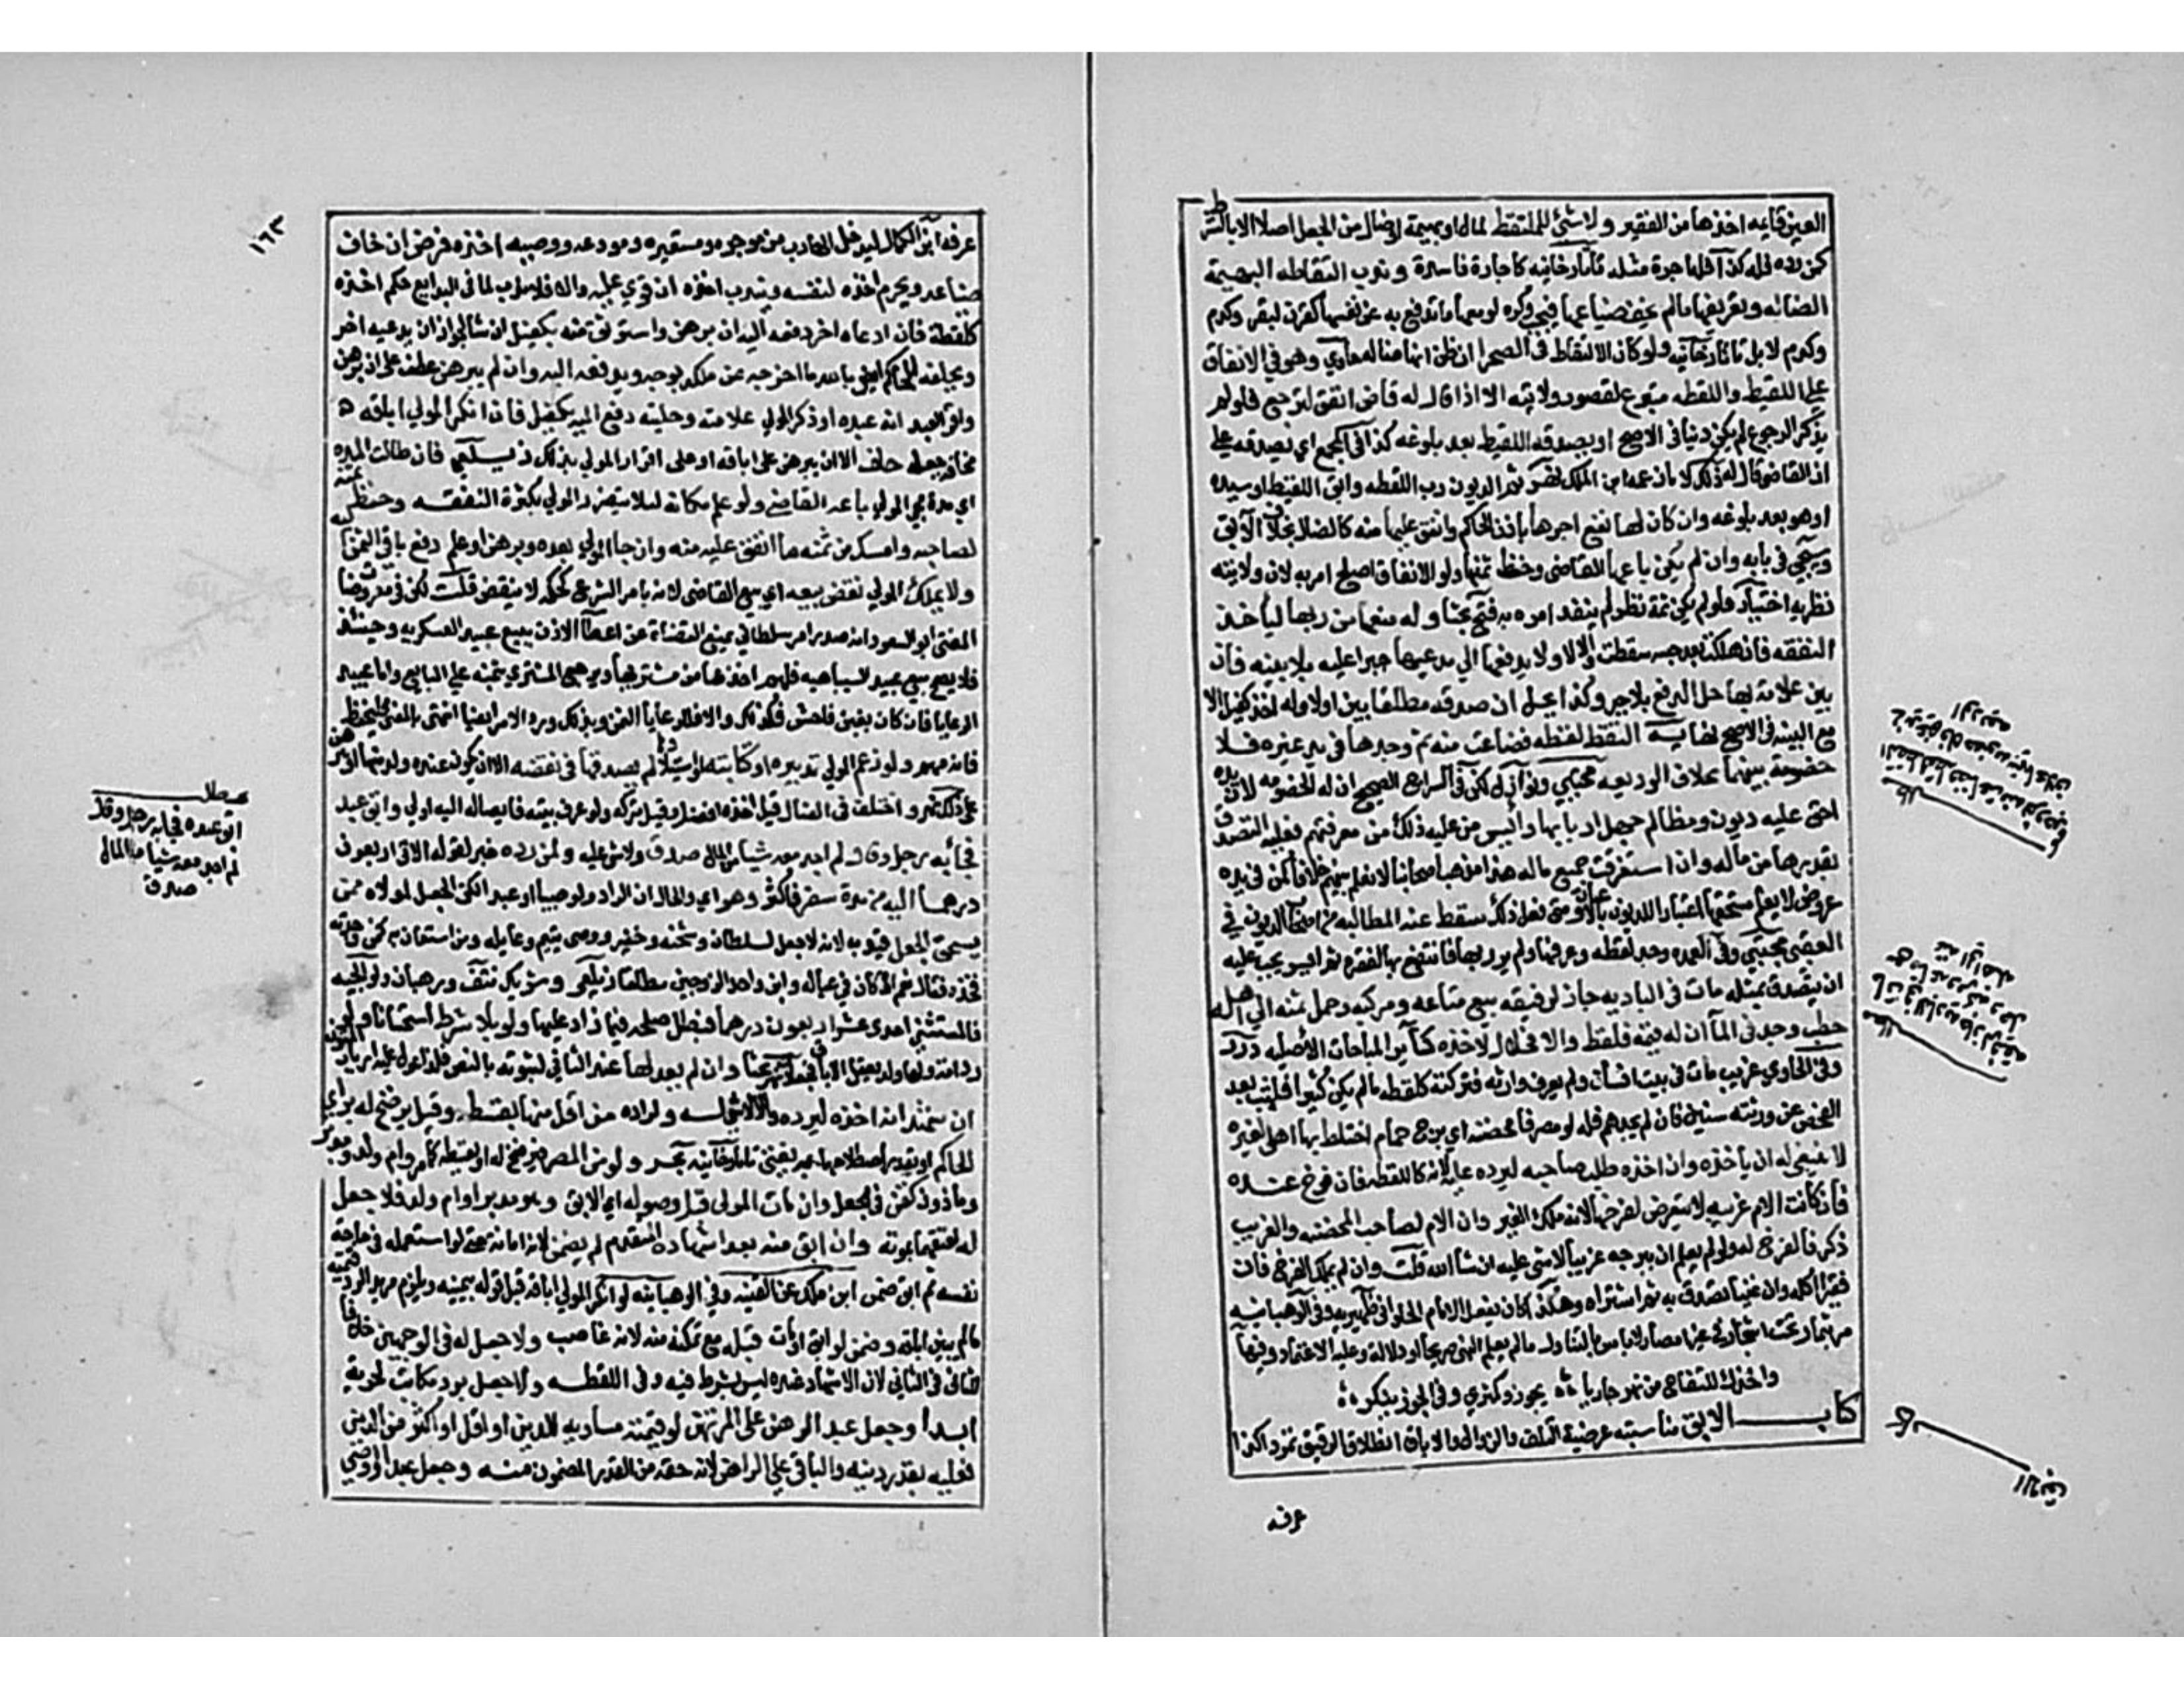 العين قايمه اخذها من الفقير ولا شئ للملتقط لمال او بهيمة او ضال من الجعل اصلا الا بالشرط
كمن رده فله كذا فله اجرة مثله تاتارخانيه كاجارة فاسدة وندب التقاطه البهيمة
الضاله وتعريفها مالم يخف ضياعها فيجب وكره لو معها ما تدفع به عن نفسها كقرن لبقر وكدم
وكدم لابل تاتارخانيه ولو كان الالتقاط في الصحرا ان ظن انها ضاله حاوي وهو في الانفاق
على اللقيط واللقطه متبرع لقصور ولايته الا اذا قال له قاض انفق لترجع فلو لم
يذكر الرجوع لم يكن دينا في الاصح او يصدقه اللقيط بعد بلوغه كذا في المجمع اي يصدقه على
ان القاضي قال له ذلك لا ما زعمه ابن الملك نهر ثم المديون رب اللقطه وابو اللقيط او سيده
او هو بعد بلوغه وان كان لها نفع اجرها باذن الحاكم وانفق عليها منه كالضال بخلاف الآبق
وسيجي في بابه وان لم يكن باعها القاضي وحفظ ثمنها ولو الانفاق اصلح امر به لان ولايته
نظريه اختيار فلو لم يكن ثمة نظر لم ينفذ امره به فتح بحثا وله منعها من ربها لياخذ
النفقه فان هلكت بعد حبسه سقطت والا لا ولا يدفعها الى مدعيها جبرا عليه بلا بينه فان
بين علامة لها حل الدفع بلا جبر وكذا يحل ان صدقه مطلقا بين اولا وله اخذ كفيل الا
مع البينه في الاصح نهايه التقط لقطه فضاعت منه ثم وجدها في يد غيره فلا
خصومه بينهما بخلاف الوديعه مجتبي ونوازل لكن في السراج الصحيح ان له الخصومه لان يده
احق عليه ديون ومظالم جهل اربابها وأيس من عليه ذلك من معرفتهم فعليه التصدق
بقدرها من ماله وان استغرقت جميع ماله هذا مذهب اصحابنا لا نعلم بينهم خلافا كمن في يده
عروض لا يعلم مستحقيها اعتبارا للديون بالاعيان ومتى فعل ذلك سقط عنه المطالبه من اصحاب الديون في
العقبى مجتبي وفي العمده وجد لقطه وعرفها ولم ير ربها فانتفع بها لفقره ثم ايسر يجب عليه
ان يتصدق بمثله مات في الباديه جاز لرفيقه بيع متاعه ومركبه وحمل ثمنه الى اهله
حطب وجد في الماء ان له قيمه فلقطه والا فحلال لآخذه كساير المباحات الاصليه درر
وفي الحاوي غريب مات في بيت انسان ولم يعرف وارثه فتركته كلقطه مالم يكن كثيرا فلبيت بعد
الفحص عن ورثته سنين فان لم يجدهم فله لو مصرفا محضنه اي برج حمام اختلط بها اهلي لغيره
لا ينبغي له ان ياخذه وان اخذه طلب صاحبه ليرده عليه لانه كاللقطه فان فرخ عنده
فان كانت الام غريبه لا يتعرض لفرخها لانه ملك الغير وان الام لصاحب المحضنه والغريب
ذكر فالفرخ له ولو لم يعلم ان ببرجه غريبا لا شي عليه ان شا الله قلت وان لم يملك الفرخ فان
فقيرا اكله وان غنيا تصدق به ثم اشتراه وهكذا كان يفعل الامام الحلواني ظهيريه وفي الوهبانيه
مر بثمار تحت اشجار في غير امصار لا باس بالتناول مالم يعلم النهي صريحا او دلاله وعليه الاعتماد وفيها
واخذك للتفاح من نهر جاريا ؞ يجوز وكمثري وفي الجوز ينكر ؞
كتاب الابق مناسبته عرضية التلف والزوال والاباق انطلاق الرقيق تمردا كذا
عرفه
مطلب
التقط لقطه فضاعت منه ثم
وجدها في يد غيره فلا خصومه
بخلاف الوديعه
مطلب
مات في الباديه جاز لرفيقه
بيع متاعه ومركبه وحمل
ثمنه الى اهله
كتاب
الابق
١٦٣
عرفه ابن الكمال ليدخل الهارب من موجره ومستعيره ومودعه ووصيه اخذه فرض ان خاف
ضياعه ويحرم اخذه لنفسه ويندب اخذه ان قوي عليه والا فلا ندب لما في البدايع حكم اخذه
كلقطة فان ادعاه اخر دفعه اليه ان برهن واستوثق منه بكفيل ان شا لجواز ان يدعيه اخر
ويحلفه الحاكم ايضا بالله ما اخرجه عن ملكه بوجه ويدفعه اليه وان لم يبرهن عطف على ان برهن
واقر العبد انه عبده او ذكر المولي علامته وحليته دفع اليه بكفيل فان انكر المولي اباقه
مخافة جعله حلف الا ان يبرهن على اباقه او على اقرار المولي بذلك زيلعي فان طالت المده
اي مدة مجي المولي باعه القاضي ولو علم مكانه لئلا يتضرر المولي بكثرة النفقه وحفظ ثمنه
لصاحبه وامسك من ثمنه ما انفق عليه منه وان جا المولي بعده وبرهن او علم دفع باقي الثمن اليه
ولا يملك المولي نقض بيعه اي بيع القاضي لانه بامر الشرع كحكمه لا ينقض قلت لكن في معروضات
المفتي ابو السعود انه صدر امر سلطاني بمنع القضاة عن اعطاء الاذن ببيع عبيد العسكريه وحينئذ
فلا يصح بيع عبيد السباهيه فلهم اخذها من مشتريها ويرجع المشتري بثمنه على البايع واما عبيد
الرعايا فان كان بغبن فاحش فكذلك والا فللرعايا الثمن وبذلك ورد الامر ايضا انتهى بالمعنى فليحفظ
فانه مهم ولو زعم المولي تدبيره او كتابته او استيلادها لم يصدق في نقضه الا ان يكون عنده ولد منها او يبرهن
على ذلك نهر واختلف في الضال قيل اخذه افضل وقيل تركه ولو عرف بيته فايصاله اليه اولي وابق عبد
فجا به رجل وقال لم اجد معه شيا من المال صدق ولا شي عليه ولمن رده خبر لقوله الاتي اربعون
درهما اليه من مدة سفر فاكثر وهو اي والحال ان الراد ولو صبيا او عبدا لكن الجعل لمولاه ممن
يستحق الجعل قيد به لانه لا جعل لسلطان وشحنه وخفير ووصي يتيم وعايله ومن استعان به كان وجدته
فخذه فقال نعم او كان في عياله وابن واحد الزوجين مطلقا زيلعي وشريكي نتف ووهبان ولوالجيه
فالمستثنى احدي عشر اربعون درهما فبطل صلحه فيما زاد عليها ولو بلا شرط استحسانا ولو
رد امة ولها ولد يعقل الاباق فجعلان نهر بحثا وان لم يعدلها عند الثاني لثبوته بالنص فلذا عول عليه ارباب المتون
ان اشهد انه اخذه ليرده والا لا شي له ولراده من اقل منها بقسطه وقيل يرضخ له براي
الحاكم او يقدر باصطلاحهما به يفتي تاتارخانيه بحر ولو من المصر فيرضخ له او بقسطه كما مر وام ولد ومدبر
وماذون كقن في الجعل وان مات المولي قبل وصوله اي الابق وهو مدبر او ام ولد فلا جعل
له لعتقهما بموته وان ابق منه بعد اشهاده المتقدم لم يضمن لانه امانه حتى لو استعمله في حاجة
نفسه ثم ابق ضمن ابن ملك عن القنيه وفي الوهبانيه لو انكر المولي اباقه قبل قوله بيمينه ويلزم مريد الرد قيمته
مالم يبين اباقه وضمن لو ابق او مات قبله مع تمكنه منه لانه غاصب ولا جعل له في الوجهين خلافا
للثاني في الثاني لان الاشهاد عنده ليس بشرط فيه وفي اللقطه ولا جعل برد مكاتب لحريته
ابدا وجعل عبد الرهن على المرتهن لو قيمته مساويه للدين او اقل او اكثر من الدين
فعليه بقدر دينه والباقي على الراهن لانه حقه من القدر المضمون منه وجعل عبد اوصي
مطلب
ابق عبده فجا به رجل وقال
لم اجد معه شيا من المال
صدق